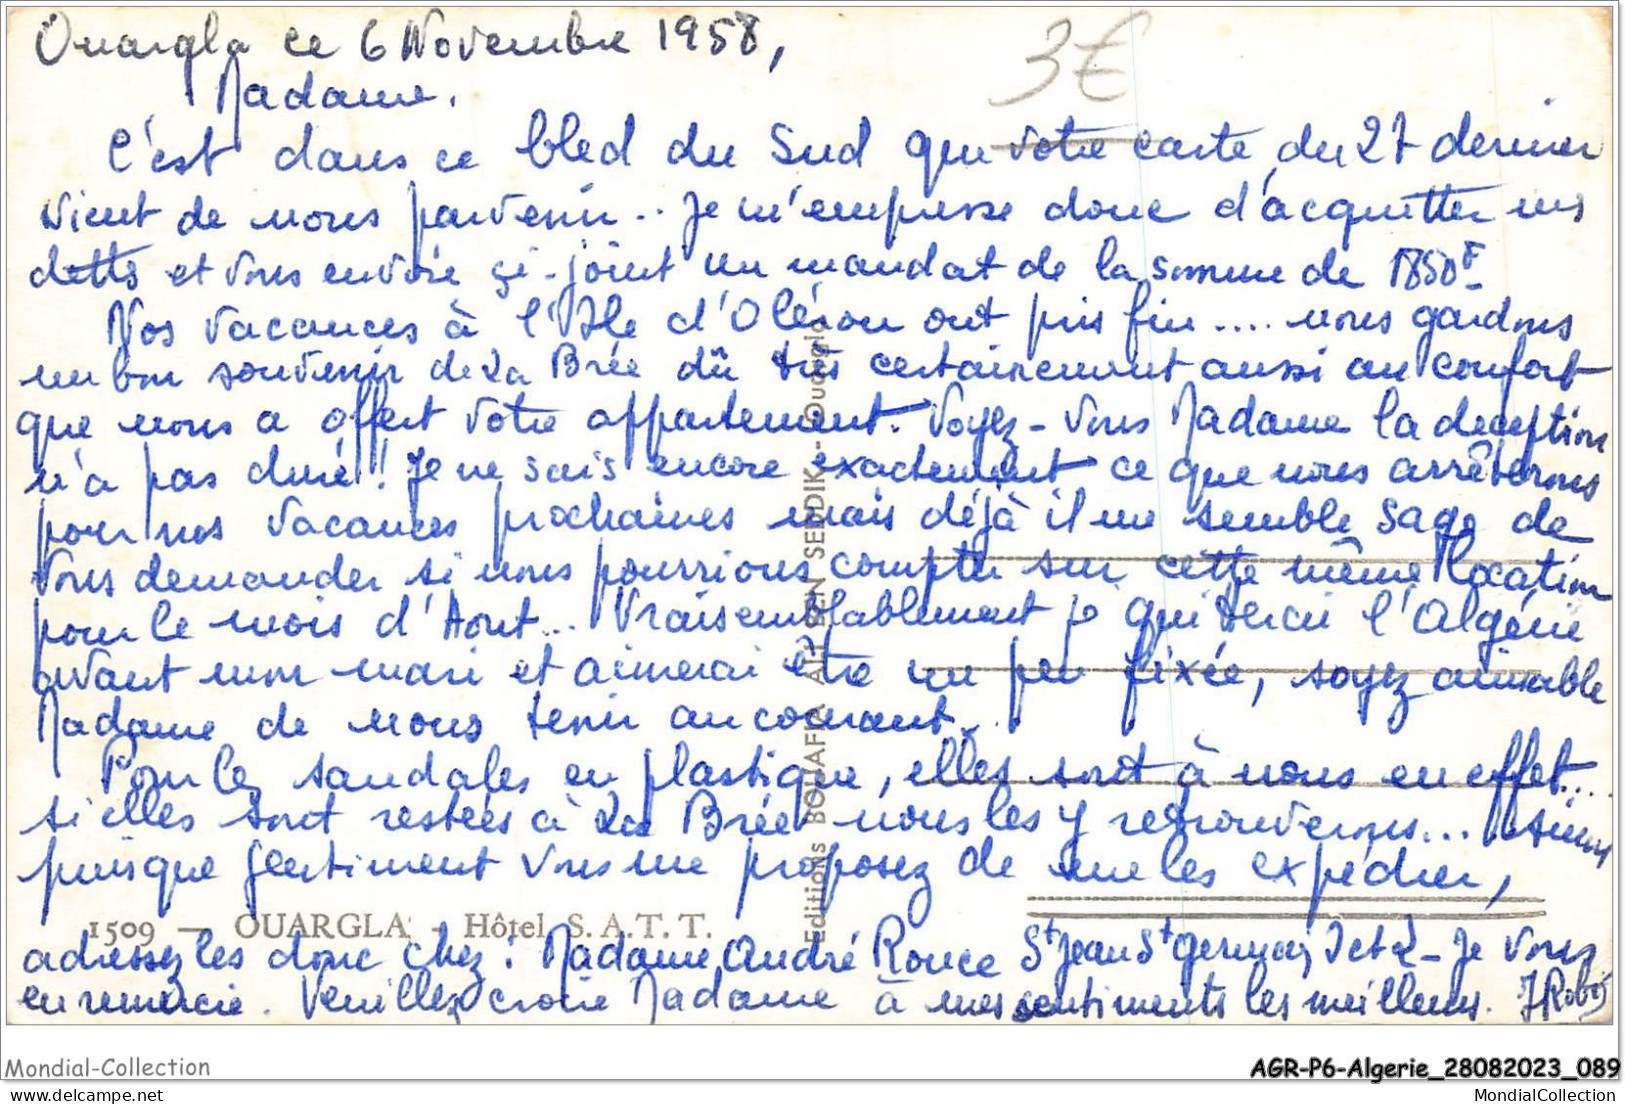 Ouargla ce 6 Novembre 1958,
3€
Madame.
C'est dans ce bled du Sud que votre carte du 27 dernier
vient de nous parvenir.. Je m'empresse donc d'acquitter mes
dettes et vous envoie çi-joint un mandat de la somme de 1850F-
Nos vacances à l'Ile d'Oléron ont pris fin.... nous gardons
un bon souvenir de La Brée dû très certainement aussi au confort
que nous a offert votre appartement. Voyez-vous Madame la déception
n'a pas duré! Je ne sais encore exactement ce que nous arrêterons
pour nos vacances prochaines mais déjà il me semble sage de
vous demander si nous pourrions compter sur cette même location
pour le mois d'Aout... Vraisemblablement je quitterai l'Algérie
avant mon mari et aimerai être un peu fixée, soyez aimable
Madame de nous tenir au courant.
Pour les sandales en plastique, elles sont à nous en effet...
si elles sont restées à La Brée nous les y retrouverons...
puisque gentiment vous me proposez de me les expédier,
adressez les donc chez: Madame André Rouce St Jean St Germain, I et L - Je vous
en remercie. Veuillez croire Madame à mes sentiments les meilleurs.
1509 — OUARGLA - Hôtel S.A.T.T.
Editions BOUAFIA ALI BEN SEDDIK - Ouargla
Mondial-Collection
AGR-P6-Algerie_28082023_089
MondialCollection